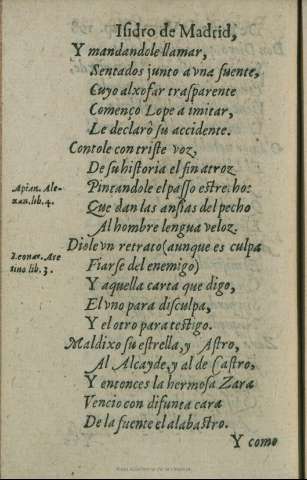 Isidro de Madrid,
Y mandandole llamar,
Sentados junto a vna fuente,
Cuyo alxofar trasparente
Començò Lope a imitar,
Le declarò su accidente.
Contole con triste voz,
De su historia el fin atroz
Apian. Ale-
xan. lib. 4.
Pintandole el passo estrecho:
Que dan las ansias del pecho
Al hombre lengua veloz.
Diole vn retrato (aunque es culpa
Leonar. Are
tino lib. 3.
Fiarse del enemigo)
Y aquella carta que digo,
El vno para disculpa,
Y el otro para testigo.
Maldixo su estrella, y Astro,
Al Alcayde, y al de Castro,
Y entonces la hermosa Zara
Vencio con difunta cara
De la fuente el alabastro.
Y como